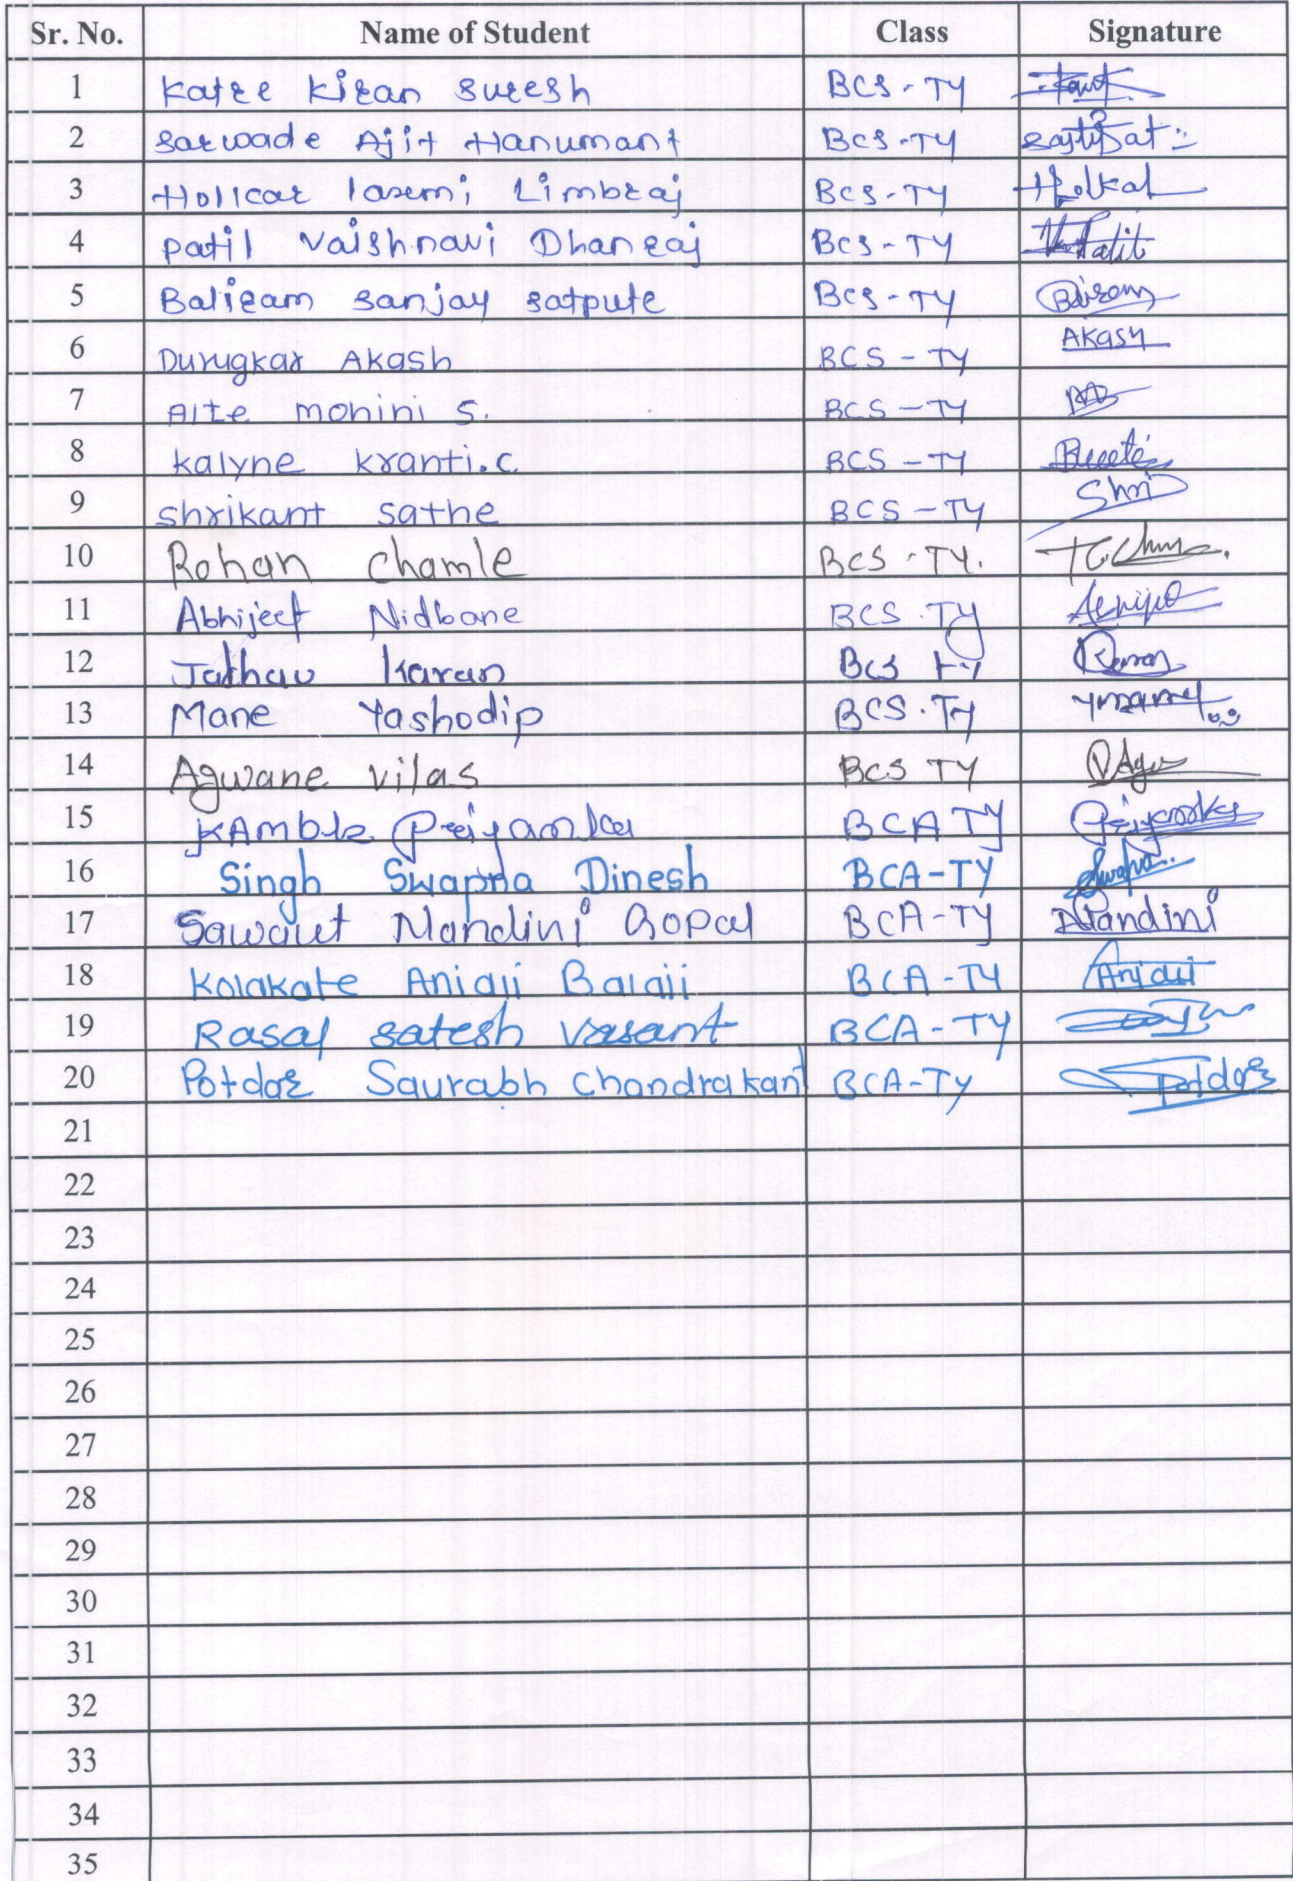 Sr. No. Name of Student Class Signature
1 Katre Kiran Suresh BCS-TY
2 Sarwade Ajit Hanumant BCS-TY
3 Holkar laxmi Limbraj BCS-TY Holkal
4 Patil Vaishnavi Dhanraj BCS-TY
5 Baliram Sanjay Satpute BCS-TY
6 Durugkar Akash BCS-TY Akash
7 Alte mohini S. BCS-TY
8 Kalyne Kranti.C. BCS-TY
9 Shrikant Sathe BCS-TY Shri
10 Rohan Chamle BCS-TY.
11 Abhijeet Nidbane BCS.TY
12 Jadhav Karan BCS TY Karan
13 Mane Yashodip BCS.TY
14 Agwane Vilas BCS TY
15 KAmble Priyanka BCA TY Priyanka
16 Singh Swapna Dinesh BCA-TY Swapna.
17 Sawant Nandini Gopal BCA-TY Nandini
18 Kolakate Anjali Balaji BCA-TY Anjali
19 Rasal Satesh Vasant BCA-TY
20 Potdar Saurabh Chandrakant BCA-TY Potdar
21
22
23
24
25
26
27
28
29
30
31
32
33
34
35